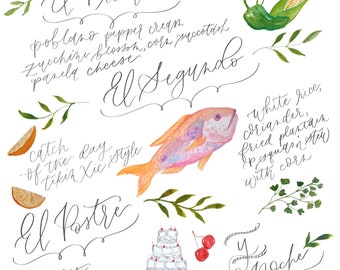 El
poblano pepper cream
zucchini blossom, corn succotash
panela cheese
El Segundo
catch
of the day
tikin Xic style
white rice,
coriander,
fried plantain
with corn
El Postre
y
noche